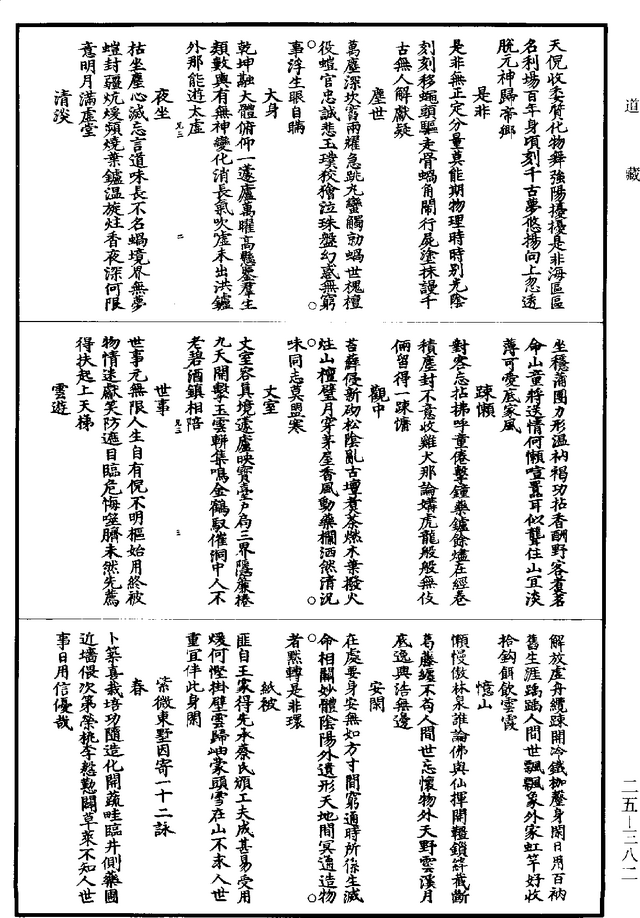 道藏
天倪收委質化物舞強陽擾擾是非海區區
名利場百年身頃刻千古夢悠揚向上忽透
脫元神歸帝鄉
是非
是非無正定分量莫能期物理時時別光陰
刻刻移蠅頭驅走骨蝸角鬧行屍塗抹謾千
古無人解獻疑
塵世
萬塵深坎窞兩耀急跳丸蠻觸勍蝸世槐檀
役螘官忠誠悲玉璞狡獪泣珠盤幻惑無窮
事浮生眼自瞞
大身
乾坤融大體俯仰一蘧廬萬曜高懸鑒羣生
類數輿有無神變化消長氣吹噓未出洪鑪
外那能遊太虛
夜坐
枯坐塵心滅忘言道味長不名蝸境界無夢
螘封疆炕煖頻燒葉鑪溫旋炷香夜深何限
意明月滿虛堂
清淡
坐穩蒲團力形溫衲褐功拈香酬野客煮茗
命山童將送情何懶喧囂耳似聾住山宜淡
薄可愛底家風
踈懶
對客忘拈拂呼童倦擊鐘藥鑪餘燼在經卷
積塵封不意收雞犬那論媾虎龍般般無伎
倆留得一踈慵
觀中
苔蘚侵新砌松陰亂古壇煮茶燃木葉撥火
炷山檀璧月穿茅屋香風動藥欄洒然清況
味同志莫盟寒
丈室
丈室容真境蘧廬映寶臺戶扃三界隱簾捲
九天開擊玉雲軿集鳴金鶴馭催洞中人不
老碧酒鎮相陪
世事
世事元無限人生自有倪不明樞始用終被
物情迷厭笑防遮目臨危悔噬臍未然先薦
得扶起上天梯
雲遊
解放虛舟纜踈開冷鐵枷罄身閑日用百衲
舊生涯踽踽人間世飄飄象外家虹竿好收
拾鈎餌飲雲霞
憶山
懶慢傲林泉誰論佛與仙揮開韁鎖絆截斷
葛藤纏不苟人間世忘懷物外天野雲溪月
底逸興浩無邊
安閑
在處要身安無如方寸間窮通時所係生滅
命相關妙體陰陽外遺形天地間冥通造物
者黙轉是非環
紙被
匪自王家得先承蔡氏頒工夫成甚易受用
煖何慳掛壁雲歸岫蒙頭雪在山不求人世
重宜伴此身閑
紫微東墅因寄一十二詠
春
卜築喜栽培功隨造化開蔬畦臨井側藥圃
近墻隈次第榮桃李慇懃闢草萊不知人世
事日用信優哉
二五—三八二